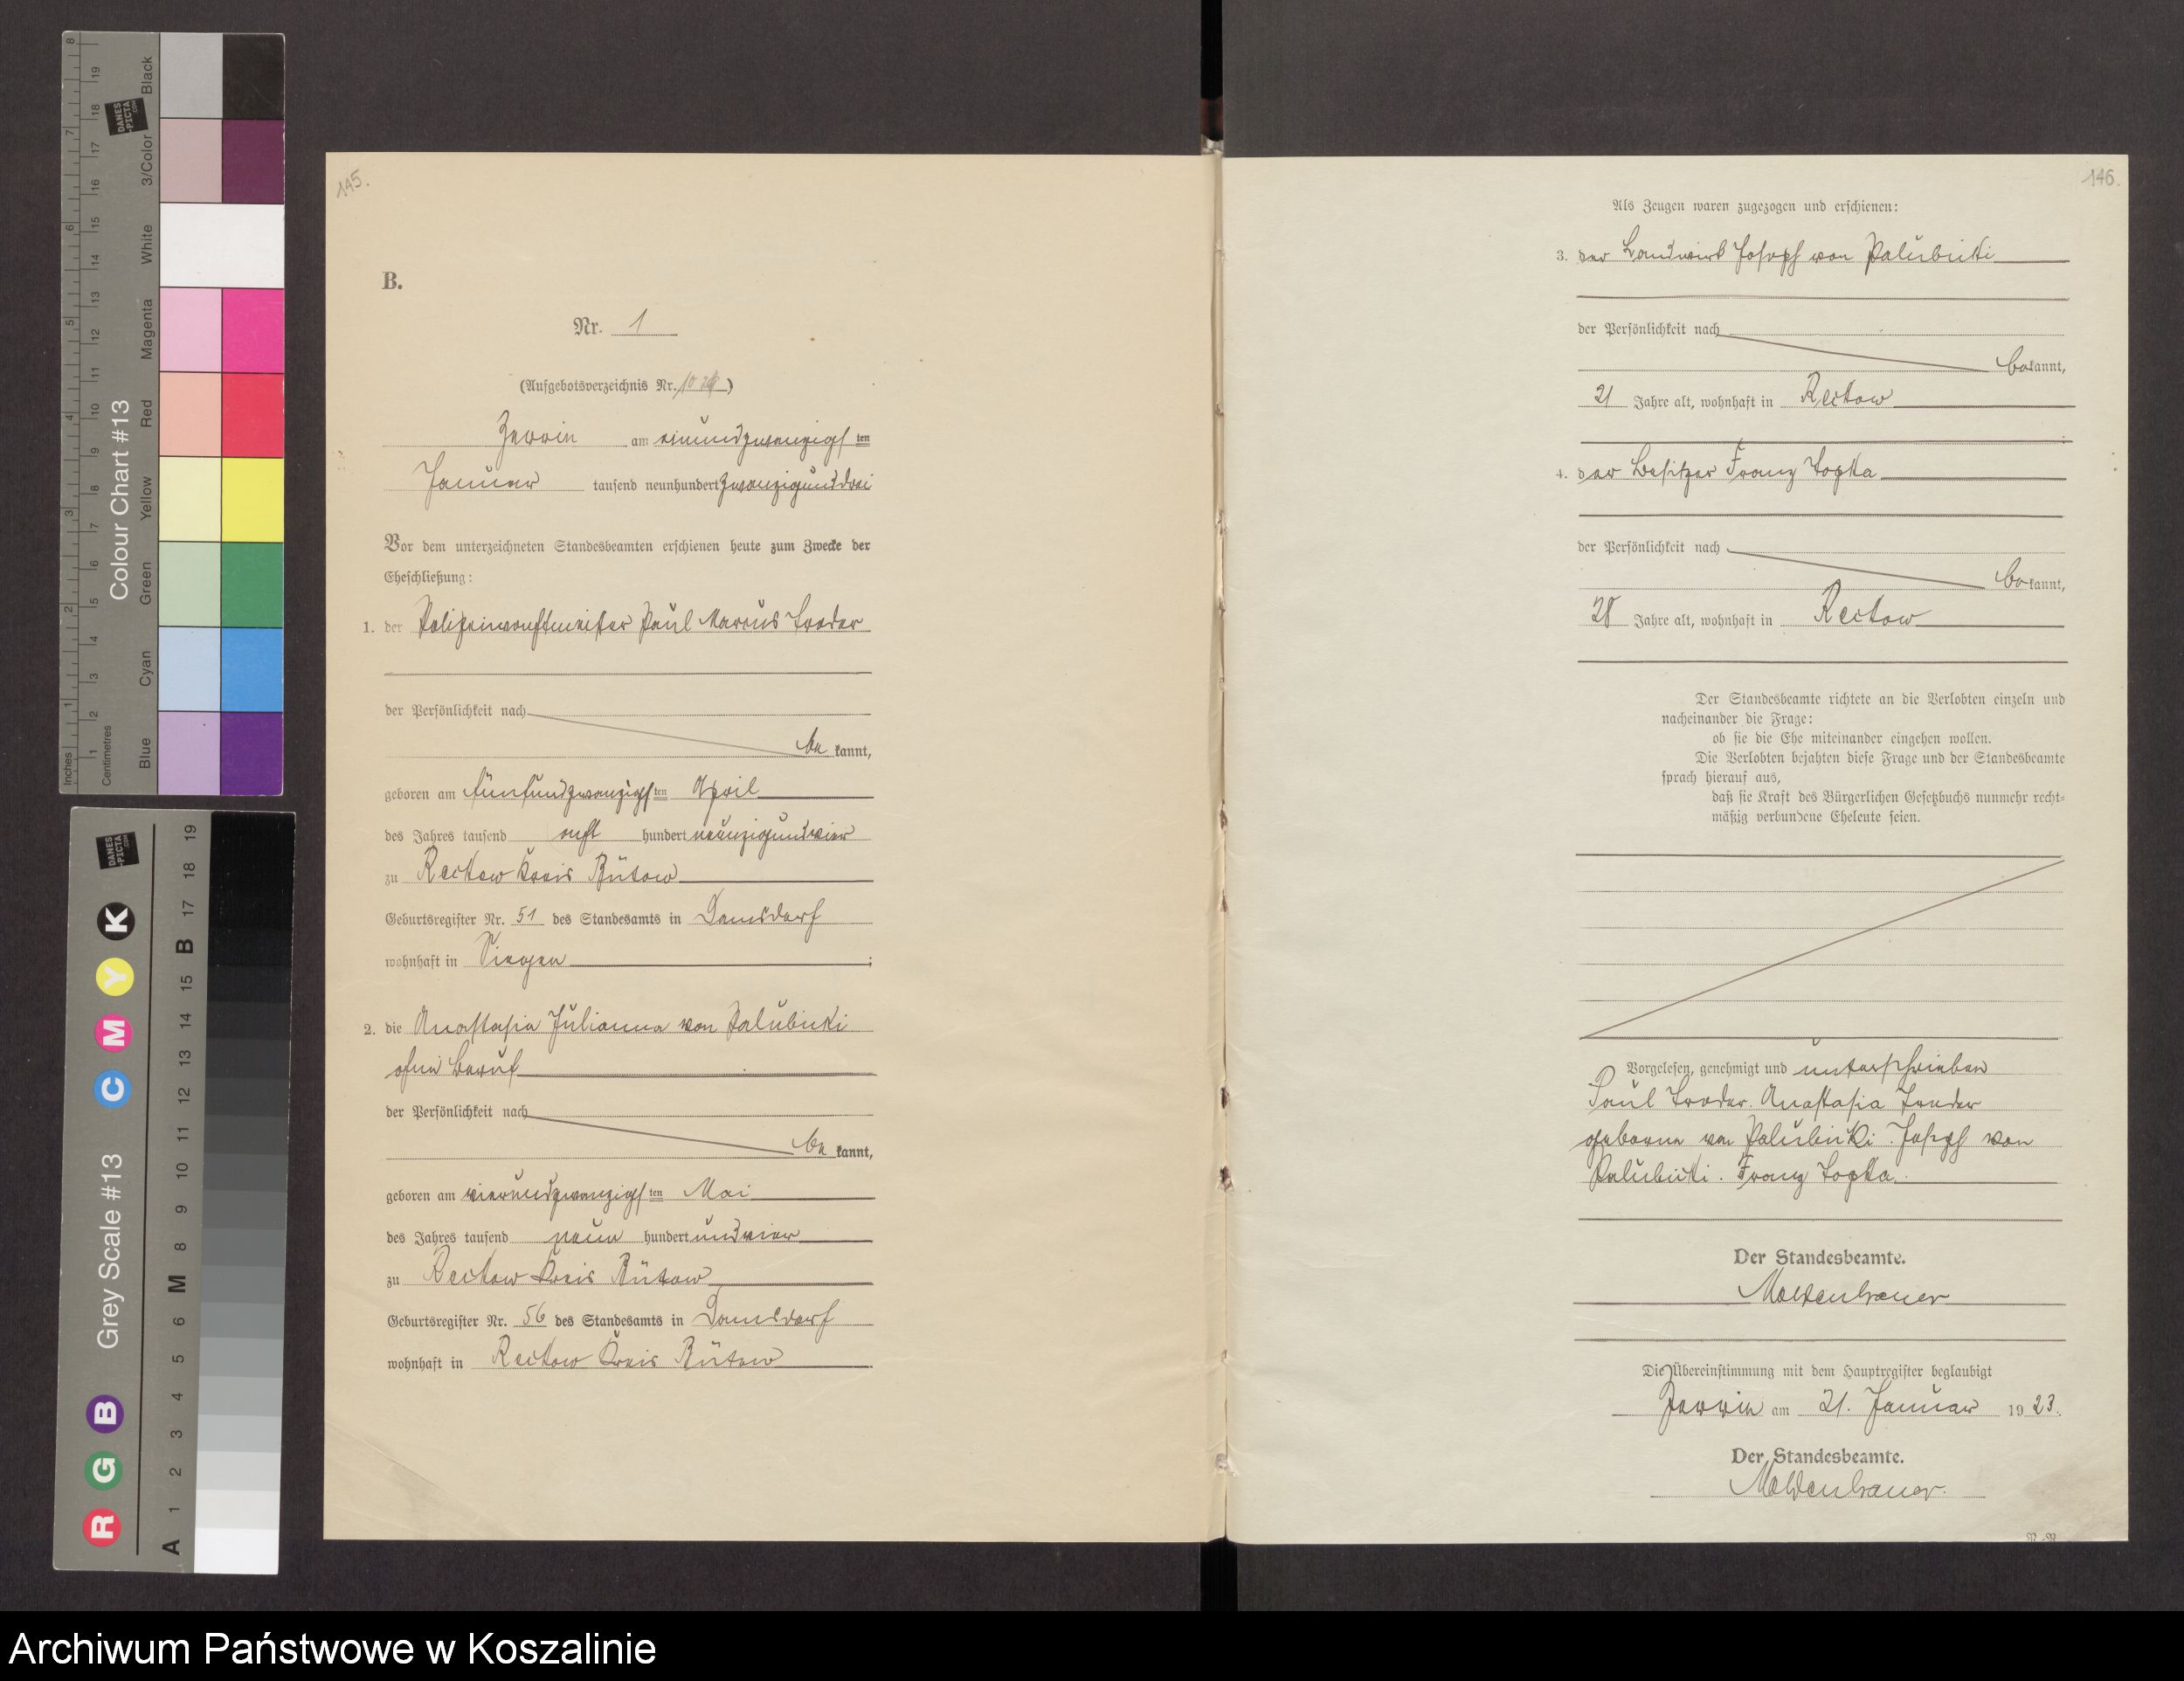 145.
B.
Nr. 1
(Aufgebotsverzeichnis Nr. )
Zerrin am einundzwanzigsten
Januar tausend neunhundert zwanzigunddrei
Vor dem unterzeichneten Standesbeamten erschienen heute zum Zwecke der
Eheschließung:
1. der Polizeiwachtmeister Paul Marcus Treder
der Persönlichkeit nach
bekannt,
geboren am fünfundzwanzigsten April
des Jahres tausend acht hundert neunzigundvier
zu Reckow Kreis Bütow
Geburtsregister Nr. 51 des Standesamts in Damsdorf
wohnhaft in Siegen ;
2. die Anastasia Julianna von Palubicki
ohne Beruf
der Persönlichkeit nach
bekannt,
geboren am vierundzwanzigsten Mai
des Jahres tausend neun hundert undvier
zu Reckow Kreis Bütow
Geburtsregister Nr. 56 des Standesamts in Damsdorf
wohnhaft in Reckow Kreis Bütow
146.
Als Zeugen waren zugezogen und erschienen:
3. der Landwirt Joseph von Palubicki
der Persönlichkeit nach
bekannt,
21 Jahre alt, wohnhaft in Reckow
4. der Besitzer Franz
der Persönlichkeit nach
bekannt,
28 Jahre alt, wohnhaft in Reckow
Der Standesbeamte richtete an die Verlobten einzeln und
nacheinander die Frage:
ob sie die Ehe miteinander eingehen wollen.
Die Verlobten bejahten diese Frage und der Standesbeamte
sprach hierauf aus,
daß sie Kraft des Bürgerlichen Gesetzbuchs nunmehr recht-
mäßig verbundene Eheleute seien.
Vorgelesen, genehmigt und unterschrieben
Paul Treder. Anastasia Treder
geborene von Palubicki. Joseph von
Palubicki. Franz
Der Standesbeamte.
Moldenhauer
Die Übereinstimmung mit dem Hauptregister beglaubigt
Zerrin am 21. Januar 1923.
Der Standesbeamte.
Moldenhauer.
Colour Chart #13
Inches
Centimetres
Blue Cyan Green Yellow Red Magenta White 3/Color Black
DANES-PICTA.COM
Grey Scale #13
R G B C M Y K
A 1 2 3 4 5 6 M 8 9 10 11 12 13 14 15 B 17 18 19
Archiwum Państwowe w Koszalinie